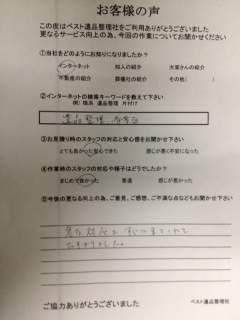 お客様の声
この度はベスト遺品整理社をご利用ありがとうございました
更なるサービス向上の為、今回の作業についてお聞かせください
①当社をどのようにお知りになりましたか？
インターネット 知人の紹介 大家さんの紹介
不動産の紹介 葬儀社の紹介 その他( )
②インターネットの検索キーワードを教えて下さい
例）横浜 遺品整理 片付け
遺品整理
③お見積り時のスタッフの対応と安心感をお聞かせ下さい
とても良かった安心できた 感じが悪く不安になった
④作業時のスタッフの対応や様子はどうでしたか？
まじめで良かった 普通 感じが悪かった
⑤今後の更なる向上の為、ご意見、ご感想、ご不満な点などもお聞かせ下さい
急な対応に すぐに来てくれて
たすかりました。
ご協力ありがとうございました
ベスト遺品整理社